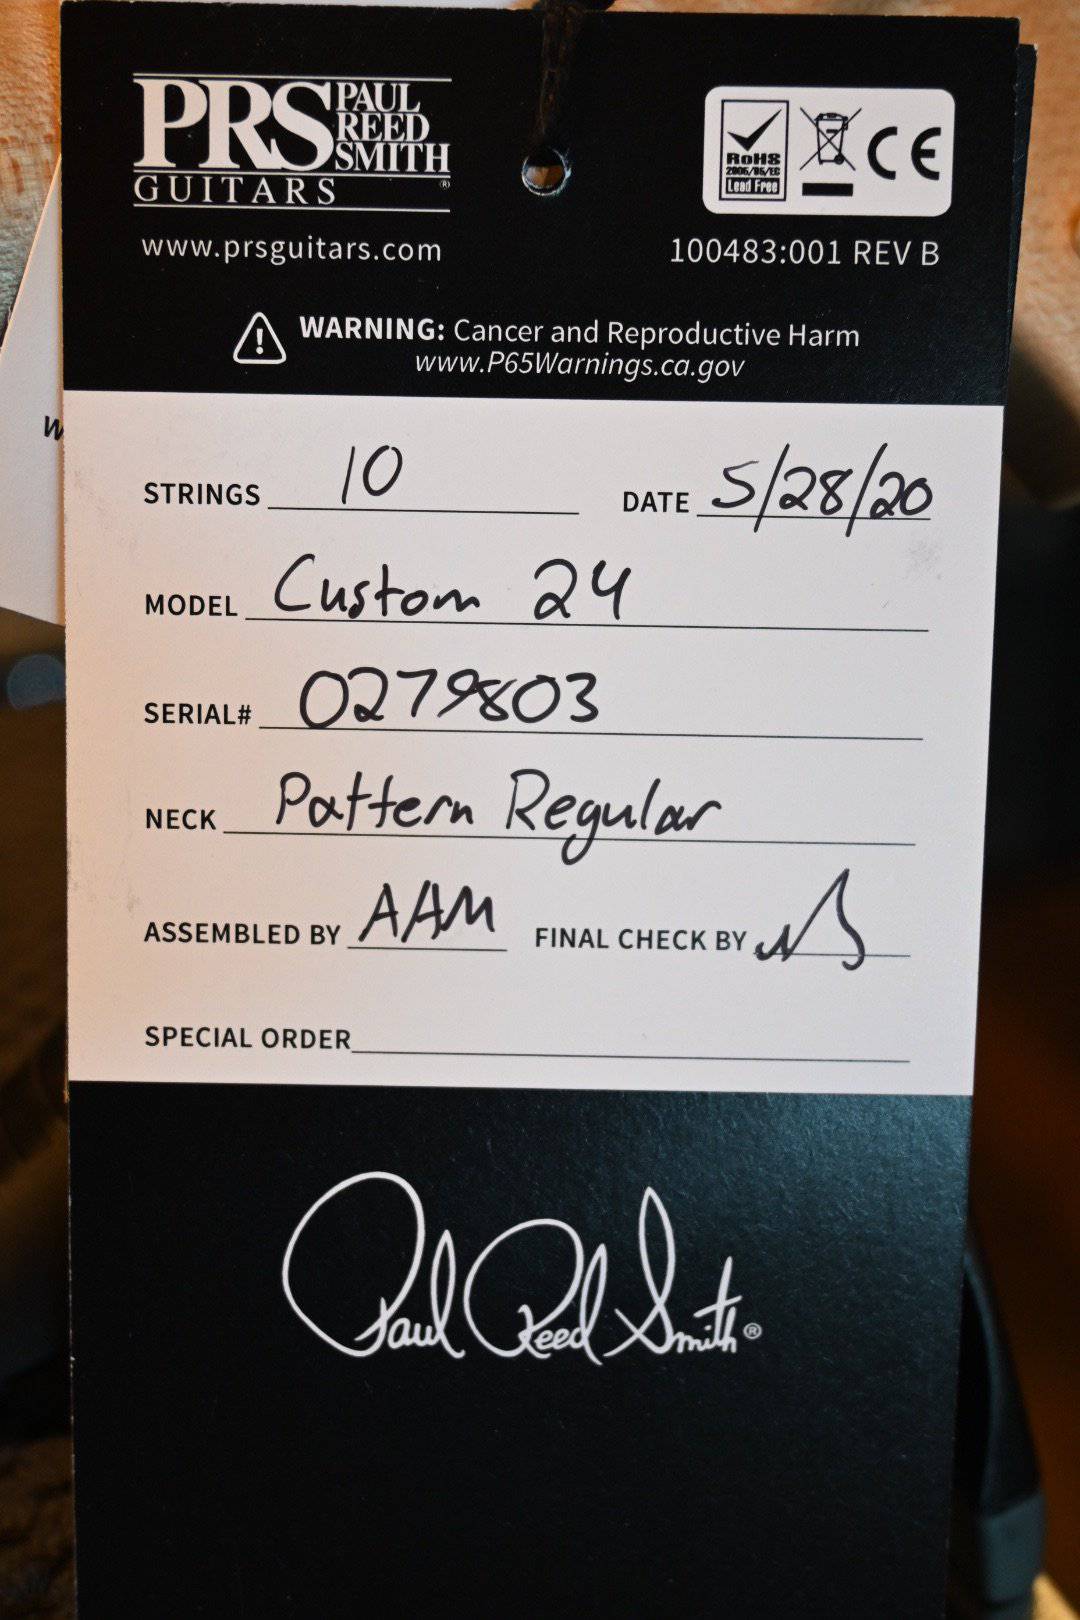 PRS PAUL REED SMITH
GUITARS ®
www.prsguitars.com
RoHS
2005/95/EC
Lead Free
CE
100483:001 REV B
WARNING: Cancer and Reproductive Harm
www.P65Warnings.ca.gov
w
STRINGS 10 DATE 5/28/20
MODEL Custom 24
SERIAL# 0279803
NECK Pattern Regular
ASSEMBLED BY AAM FINAL CHECK BY
SPECIAL ORDER
Paul Reed Smith®